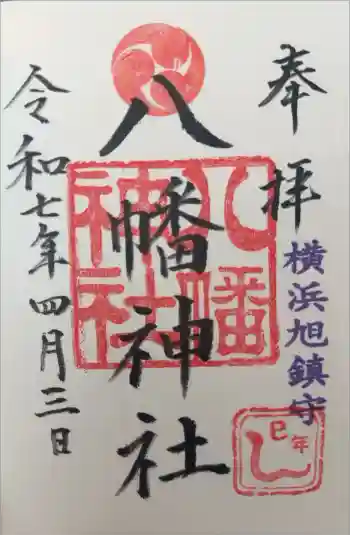 奉拝
横浜旭鎮守
巳年
八幡神社
八幡神社
令和七年四月三日